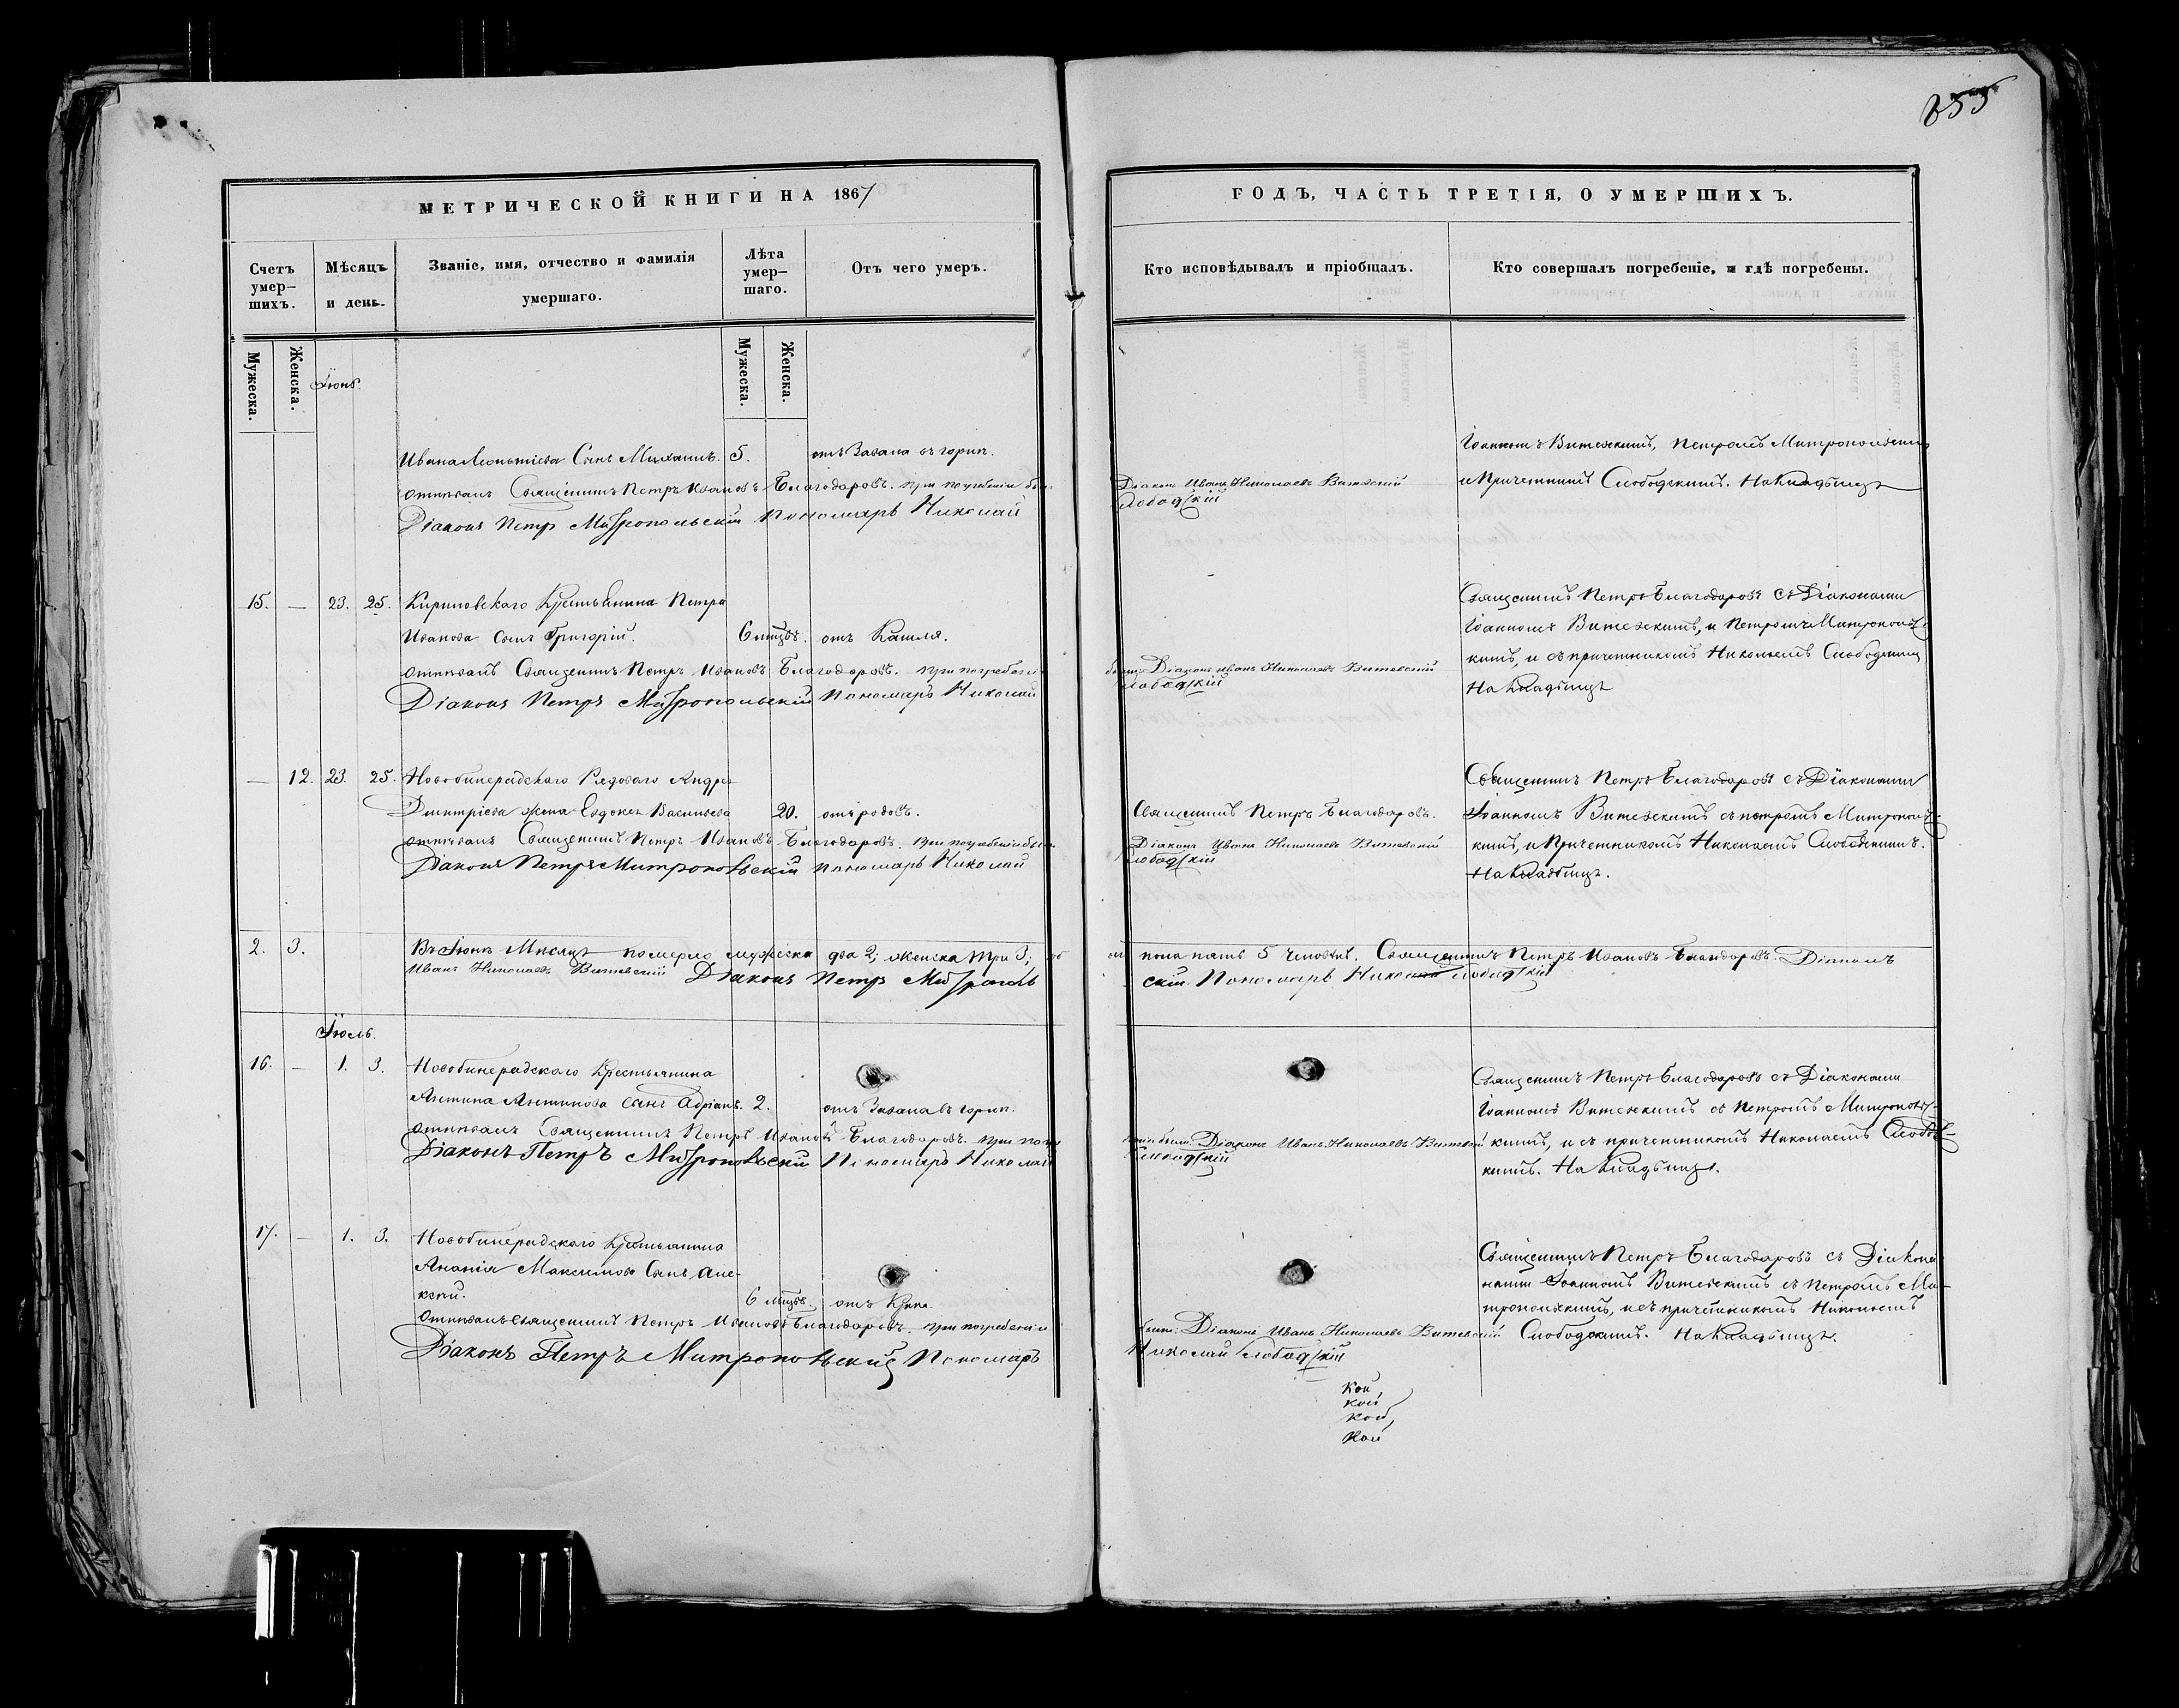 855
МЕТРИЧЕСКОЙ КНИГИ НА 1867
Счетъ умер-шихъ.
Мѣсяцъ и день.
Званіе, имя, отчество и фамилія умершаго.
Лѣта умер-шаго.
Отъ чего умеръ.
Мужеска.
Женска.
Мужеска.
Женска.
Іюнь.
Ивана Леонтіева Сынъ Михаилъ. 5. отъ Запала въ горлѣ.
отпѣвалъ Священникъ Петръ Ивановъ Благодаровъ. при погребеніи
Діаконъ Петръ Митропольскій Пономарь Николай
15. — 23. 25. Кириловскаго Крестьянина Петра
Иванова сынъ Григорій. 6 мцвъ. отъ Кашля.
отпѣвалъ Священникъ Петръ Ивановъ Благодаровъ. при погребеніи
Діаконъ Петръ Митропольскій Пономарь Николай
— 12. 23. 25. Рядоваго Андрея
Дмитріева жена Евдокія Васильева 20. отъ родовъ.
отпѣвалъ Священникъ Петръ Ивановъ Благодаровъ. при погребеніи
Діаконъ Петръ Митропольскій Пономарь Николай
2. 3. Въ Іюнѣ Мѣсяцѣ померло мужеска два 2; женска три 3;
Иванъ Николаевъ Витевскій Діаконъ Петръ Митрополь
Іюль.
16. — 1. 3. Крестьянина
Антипа Антипова сынъ Адріанъ. 2. отъ Запала въ горлѣ.
отпѣвалъ Священникъ Петръ Ивановъ Благодаровъ. при погре
Діаконъ Петръ Митропольскій Пономарь Николай
17. — 1. 3. Крестьянина
Ананія Максимова Сынъ Але-
ксѣй. 6 мцвъ. отъ Крика
отпѣвалъ священникъ Петръ Ивановъ Благодаровъ. при погребеніи
Діаконъ Петръ Митропольскій Пономарь
ГОДЪ, ЧАСТЬ ТРЕТІЯ, О УМЕРШИХЪ.
Кто исповѣдывалъ и пріобщалъ.
Кто совершалъ погребеніе, и гдѣ погребены.
Іоанномъ Витевскимъ, Петромъ Митропольскимъ
Діаконъ Иванъ Николаевъ Витевскій и Причетникомъ Слободскимъ. На Кладбищѣ
Слободскій
Священникъ Петръ Благодаровъ съ Діаконами
Іоанномъ Витевскимъ, и Петромъ Митрополь-
были: Діаконъ Иванъ Николаевъ Витевскій кимъ, и съ причетникомъ Николаемъ Слободским
Слободскій На Кладбищѣ
Священникъ Петръ Благодаровъ съ Діаконами
Священникъ Петръ Благодаровъ. Іоанномъ Витевскимъ съ петромъ Митрополь-
Діаконъ Иванъ Николаевъ Витевскій кимъ, и Причетникомъ Николаемъ Слободскимъ.
Слободскій На Кладбищѣ.
пола пять 5 человѣкъ. Священникъ Петръ Ивановъ Благодаровъ. Діаконъ
скій Пономарь Николай Слободскій
Священникъ Петръ Благодаровъ съ Діаконами
Іоанномъ Витевскимъ съ Петромъ Митрополь-
были: Діаконъ Иванъ Николаевъ Витевскій кимъ, и съ причетникомъ Николаемъ Слободс-
Слободскій кимъ. На Кладбищѣ.
Священникъ Петръ Благодаровъ съ Діако
нами Іоанномъ Витевскимъ съ Петромъ Ми-
тропольскимъ, и съ причетникомъ Николаемъ
были: Діаконъ Иванъ Николаевъ Витевскій Слободскимъ. На Кладбищѣ.
Николай Слободскій
Кой,
кой
кой,
Кой